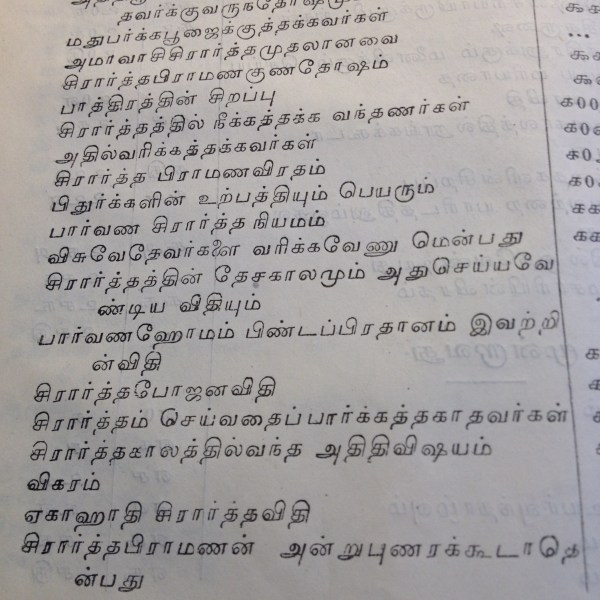 தவர்க்குவருந்தோஷமும்
மதுபர்க்கபூஜைக்குத்தக்கவர்கள்
அமாவாசிசிரார்த்தமுதலானவை
சிரார்த்தபிராமணகுணதோஷம்
பாத்திரத்தின் சிறப்பு
சிரார்த்தத்தில் நீக்கத்தக்க வந்தணர்கள்
அதில்வரிக்கத்தக்கவர்கள்
சிரார்த்த பிராமணவிரதம்
பிதுர்க்களின் உற்பத்தியும் பெயரும்
பார்வண சிரார்த்த நியமம்
விசுவேதேவர்களை வரிக்கவேணு மென்பது
சிரார்த்தத்தின் தேசகாலமும் அதுசெய்யவே
ண்டிய விதியும்
பார்வணஹோமம் பிண்டப்பிரதானம் இவற்றி
ன்விதி
சிரார்த்தபோஜனவிதி
சிரார்த்தம் செய்வதைப்பார்க்கத்தகாதவர்கள்
சிரார்த்தகாலத்தில்வந்த அதிதிவிஷயம்
விகரம்
ஏகாஹாதி சிரார்த்தவிதி
சிரார்த்தபிராமணன் அன்றுபுணரக்கூடாதெ
ன்பது